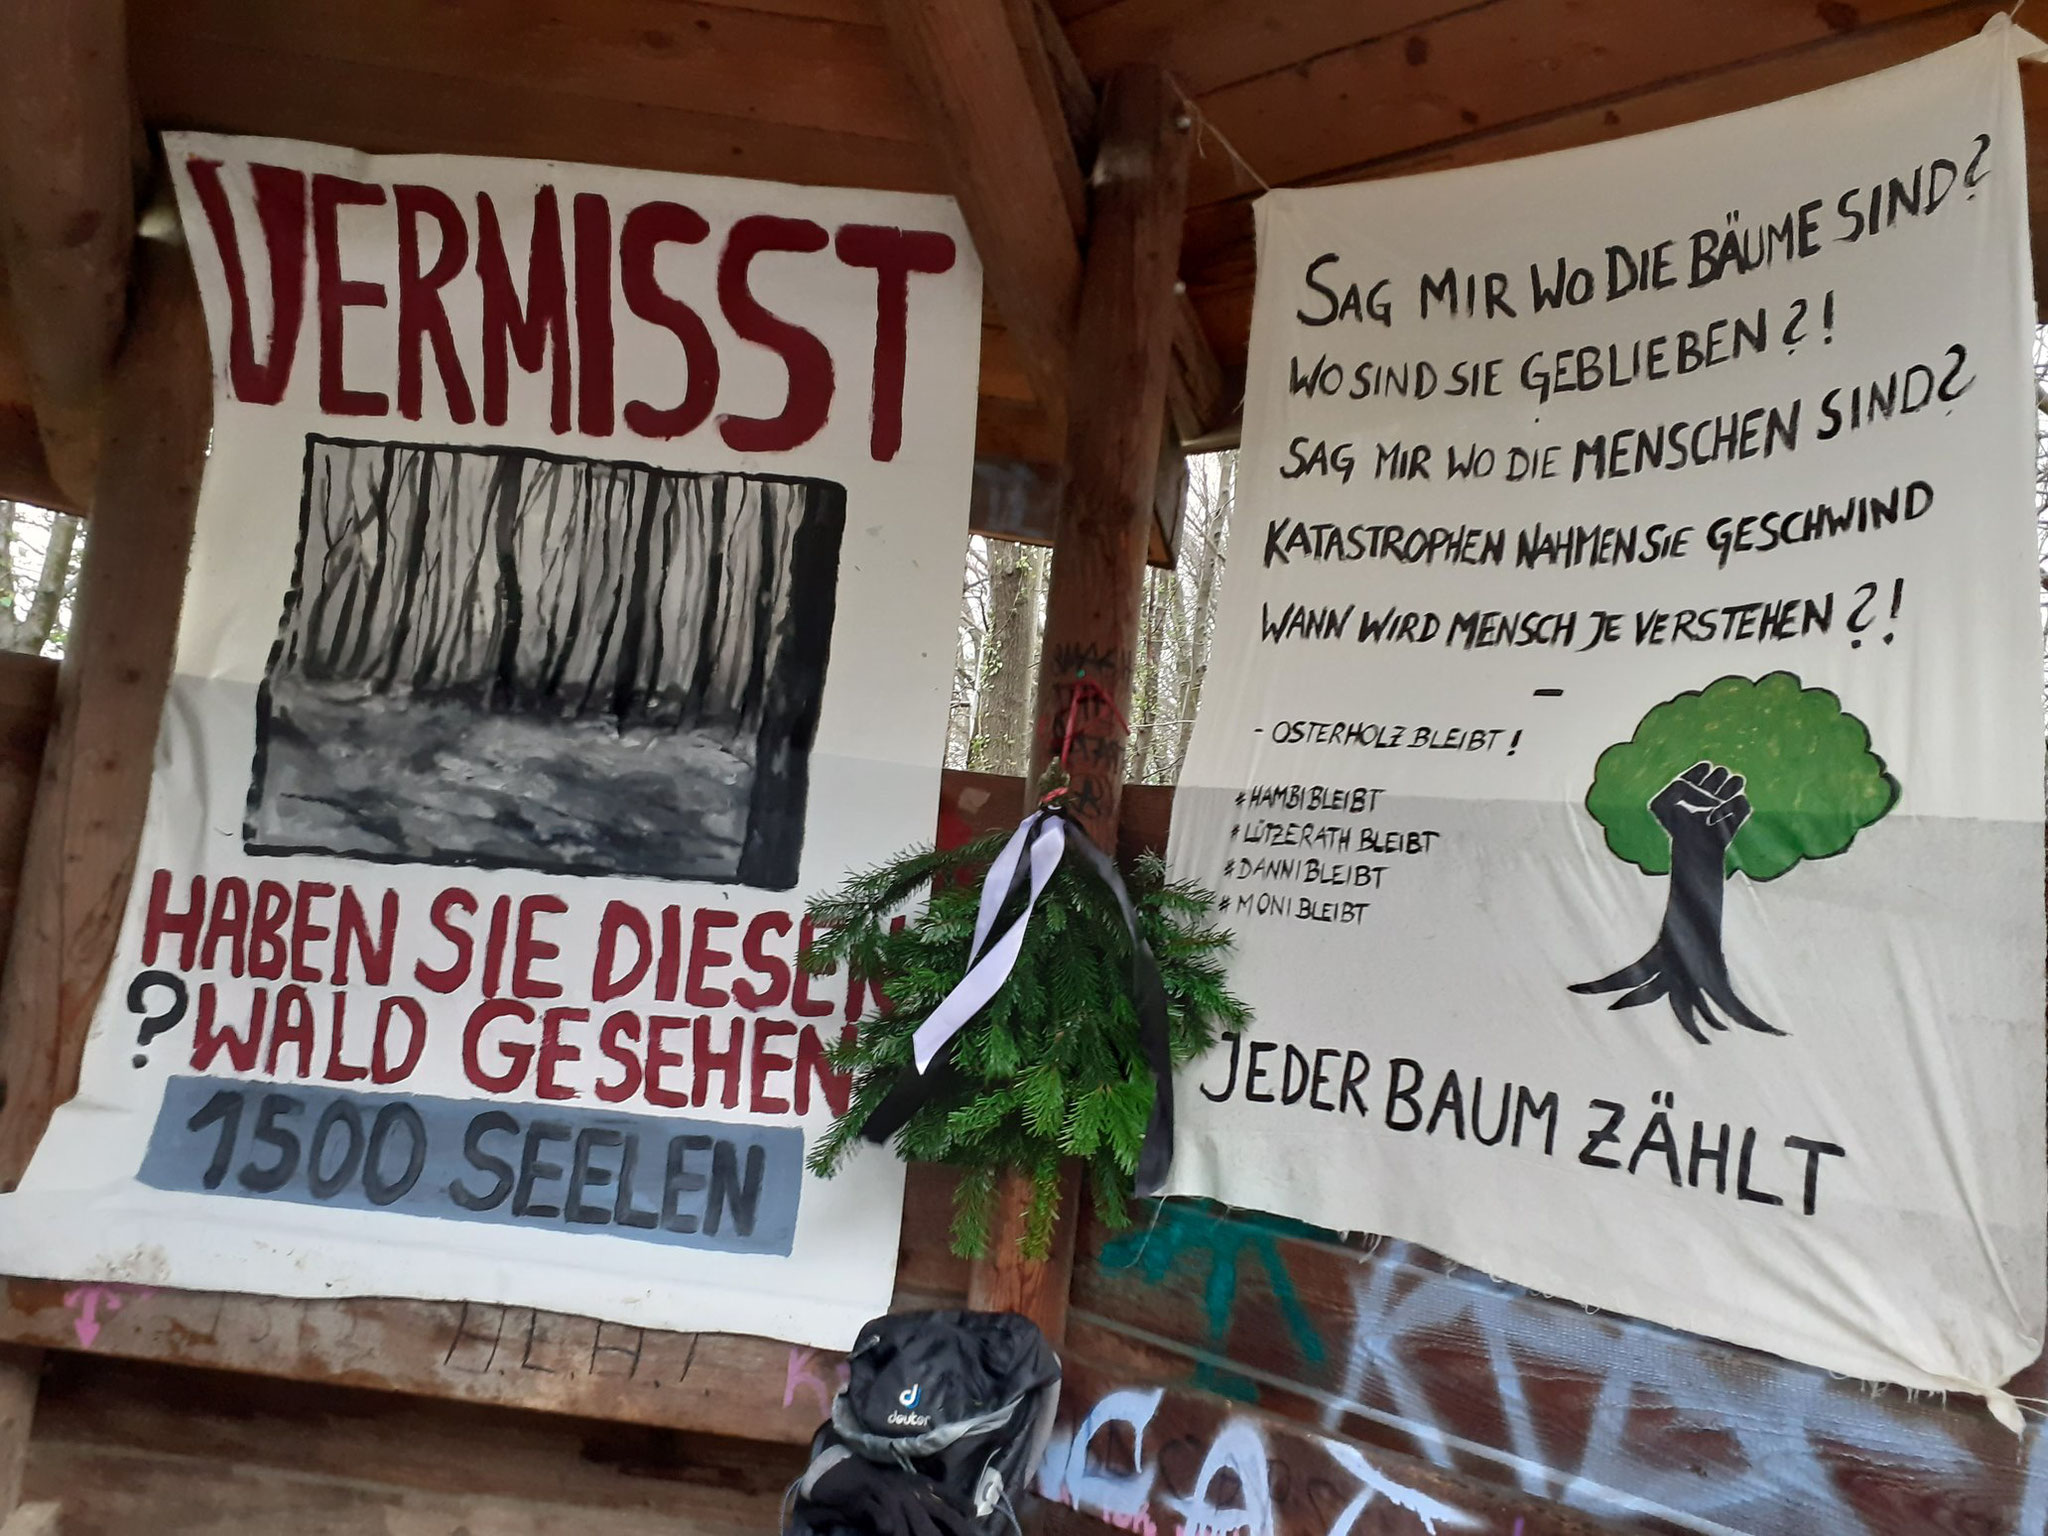 VERMISST
HABEN SIE DIESEN
? WALD GESEHEN
1500 SEELEN
SAG MIR WO DIE BÄUME SIND?
WO SIND SIE GEBLIEBEN?!
SAG MIR WO DIE MENSCHEN SIND?
KATASTROPHEN NAHMEN SIE GESCHWIND
WANN WIRD MENSCH JE VERSTEHEN?!
-
- OSTERHOLZ BLEIBT!
#HAMBI BLEIBT
#LÜTZERATH BLEIBT
#DANNI BLEIBT
#MONI BLEIBT
JEDER BAUM ZÄHLT
d
deuter